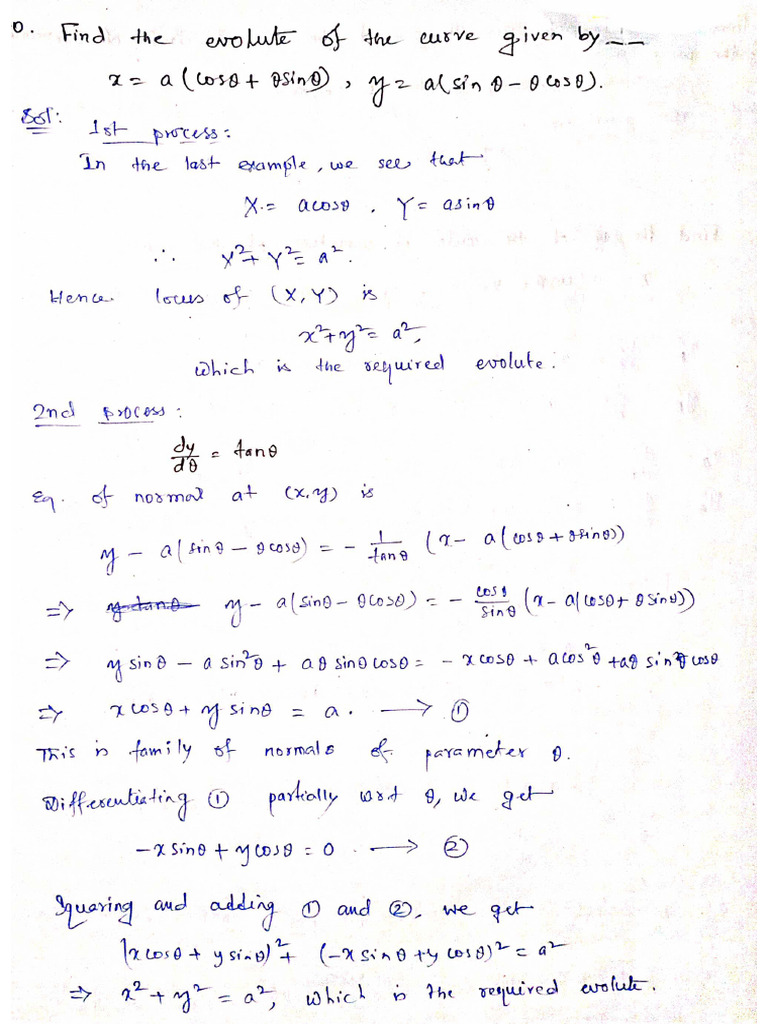 0. Find the evolute of the curve given by __
x = a (cosθ + θsinθ), y = a(sin θ - θ cosθ).
Sol:
1st process:
In the last example, we see that
X = acosθ, Y = asinθ
∴ X² + Y² = a².
Hence locus of (X, Y) is
x² + y² = a²,
which is the required evolute.
2nd process:
dy/dθ = tanθ
Eq. of normal at (x,y) is
y - a(sinθ - θcosθ) = - 1/tanθ (x - a(cosθ + θsinθ))
⇒ y tanθ y - a(sinθ - θcosθ) = - cosθ/sinθ (x - a(cosθ + θsinθ))
⇒ y sinθ - a sin²θ + aθ sinθ cosθ = - x cosθ + a cos²θ + aθ sinθ cosθ
⇒ x cosθ + y sinθ = a. ⟶ ①
This is family of normals of parameter θ.
Differentiating ① partially wrt θ, we get
-x sinθ + y cosθ = 0 ⟶ ②
Squaring and adding ① and ②, we get
(x cosθ + y sinθ)² + (-x sinθ + y cosθ)² = a²
⇒ x² + y² = a², which is the required evolute.